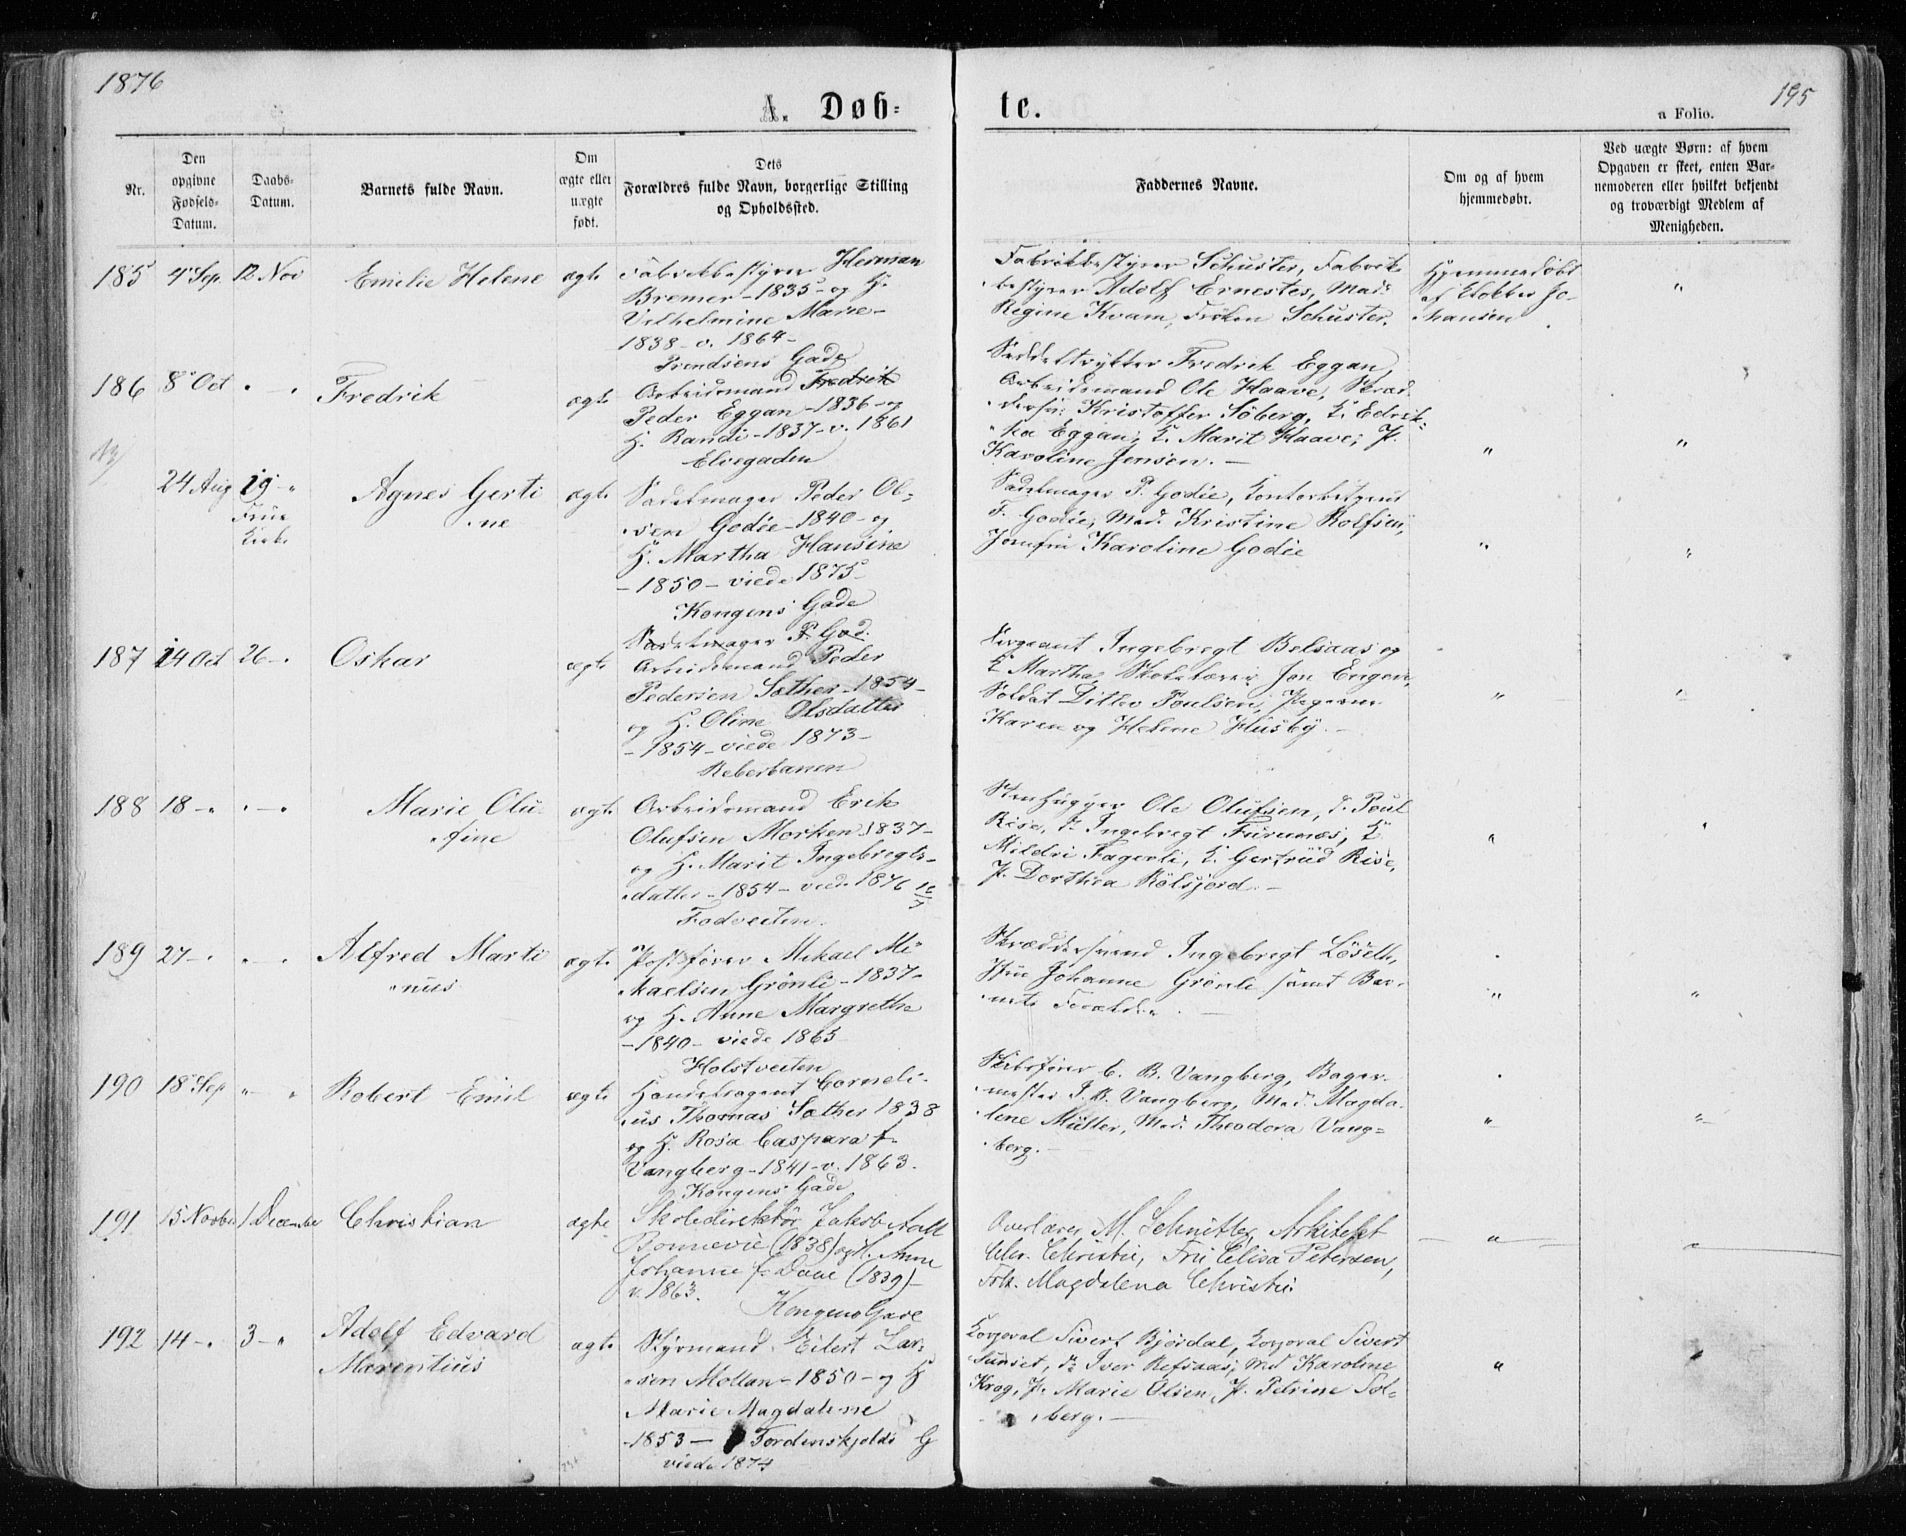 1876
195
A. Døb-
te.
a Folio.
Nr.
Den opgivne Fødsels-Datum.
Daabs-Datum.
Barnets fulde Navn.
Om ægte eller uægte født.
Dets Forældres fulde Navn, borgerlige Stilling og Opholdssted.
Faddernes Navne.
Om og af hvem hjemmedøbt.
Ved uægte Børn: af hvem Opgaven er skeet, enten Barnemoderen eller hvilket bekjendt og troværdigt Medlem af Menigheden.
185 4 Sep. 12 Nov Emilie Helene ægte
Fabrikbestyrer Herman
Bremer - 1835 - og H.
Vilhelmine Marie -
1838 - v. 1864 -
Fabrikbestyrer Schuster, Fabrik-
bestyrer Adolf Ernestes, Mad.
Regine Kvam, Frøken Schuster.
Hjemmedøbt
af Klokker Jo-
hansen
"
186 8 Oct " - " Fredrik ægte
Gade
Arbeidsmand Fredrik
Peder Eggan - 1836 - og
H. Randi - 1837 - v. 1861
Elvegaden
Fredrik Eggan,
Arbeidsmand Ole Haave, Skræd-
dersv. Kristoffer Söberg, K. Edrik-
ka Eggan, K. Marit Haave, P.
Karoline Jensen. -
"
"
24 Aug 19 - "
Frue
Kirke
Agnes Gerti
ne
ægte
Sadelmager Peder Ol-
sen Godöe - 1840 - og
H. Martha Hansine
- 1850 - viede 1875 -
Kongens Gade
Sadelmager P. Godöe, Kontorbetjent
F. Godöe, Mad. Kristine Rolfsen,
Jomfru Karoline Godöe
"
"
187 14 Oct 26 - " Oskar ægte
Sadelmager P. God.
Arbeidsmand Peder
Pedersen Sæther - 1854 -
og H. Oline Olsdatter
- 1854 - viede 1873 -
Reberbanen
Sergeant Ingebregt Belsaas og
K. Martha, Skolelærer Jon Engen,
Soldat Ditlev Poulsen, Pigerne
Karen og Helene Husby. -
"
"
188 18 - " " - " Marie Olu
fine
ægte
Arbeidsmand Erik
Olufsen Morken 1837 -
og H. Marit Ingebregts-
datter - 1854 - vied. 1876
Fodveiten.
Stenhugger Ole Olufsen, do. Poul
Rise, do. Ingebregt Furunæs, K.
Mildri Fagerli, K. Gertrüd Rise,
P. Dorthea
"
189 27 - " " - " Alfred Marti
nus
ægte
Postfører Mikael Mi
kaelsen Grönli - 1837 -
og H. Anne Margrethe
- 1840 - viede 1865
Holstveiten
Skræddersvend Ingebregt Löseth,
Johanne Grönli samt Bar-
nets Forældre.
"
"
190 18 Sep " - " Robert Emil ægte
Handelsagent Corneli-
us Thomas Sæther 1838
og H. Rosa Caspara f.
Vangberg - 1841 - v. 1863.
Kongens Gade
Skibsfører C. B. Vangberg, Bager-
mester J. B. Vangberg, Mad. Magda-
lene Müller, Mad. Theodora Vang-
berg. -
"
"
191 15 Novbr 1 December Christian ægte
Skoledirektör Jakob Aall
Bonnevie (1838) og H. Anne
Johanne f. Daae (1839) -
v. 1863.
Kongens Gade
Overlærer M. Schnitler, Arkitekt
Chr. Christie, Fru Elisa Petersen,
Frk. Magdalena Christie.
"
"
192 14 - " 3 - " Adolf Edvard
Marentius
ægte
Styrmand Eilert Lar-
sen Mollan - 1850 - og H
Marie Magdalene
- 1853 - Tordenskjolds G
viede 1874
Korporal Sivert Bjørdal, Korporal Sivert
Sunset, do. Iver Refsaas, Md Karoline
Krog, P. Marie Olsen, P. Petrine Sol-
berg. -
"